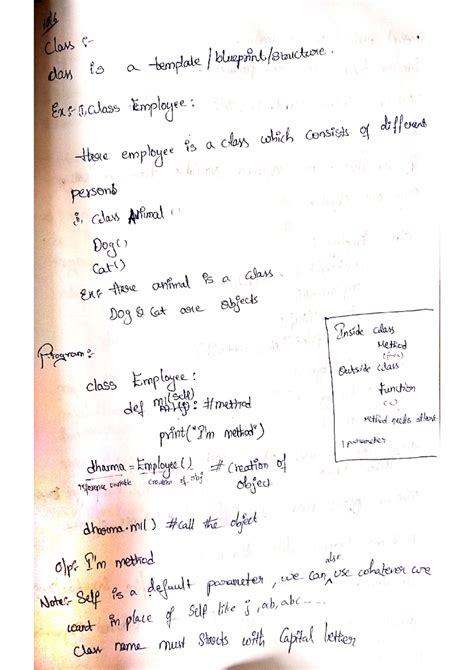 Class :-
class is a template / blueprint / structure.
Ex:- 1, Class Employee :
Here employee is a class which consists of different
persons
Class Animal
Dog()
Cat()
Ex:- Here animal is a class.
Dog & Cat are objects
Program:-
class Employee :
def m1(self): #method
print("I'm method")
dharma = Employee() # Creation of
reference variable creation of obj object
dharma.m1() #call the object
O/p:- I'm method
Note:- Self is a default parameter, we can also use whatever we
want in place of self like j, ab, abc....
Class name must Starts with Capital letter
Inside class
Method
Outside class
Function
Method needs atleast
1 parameter